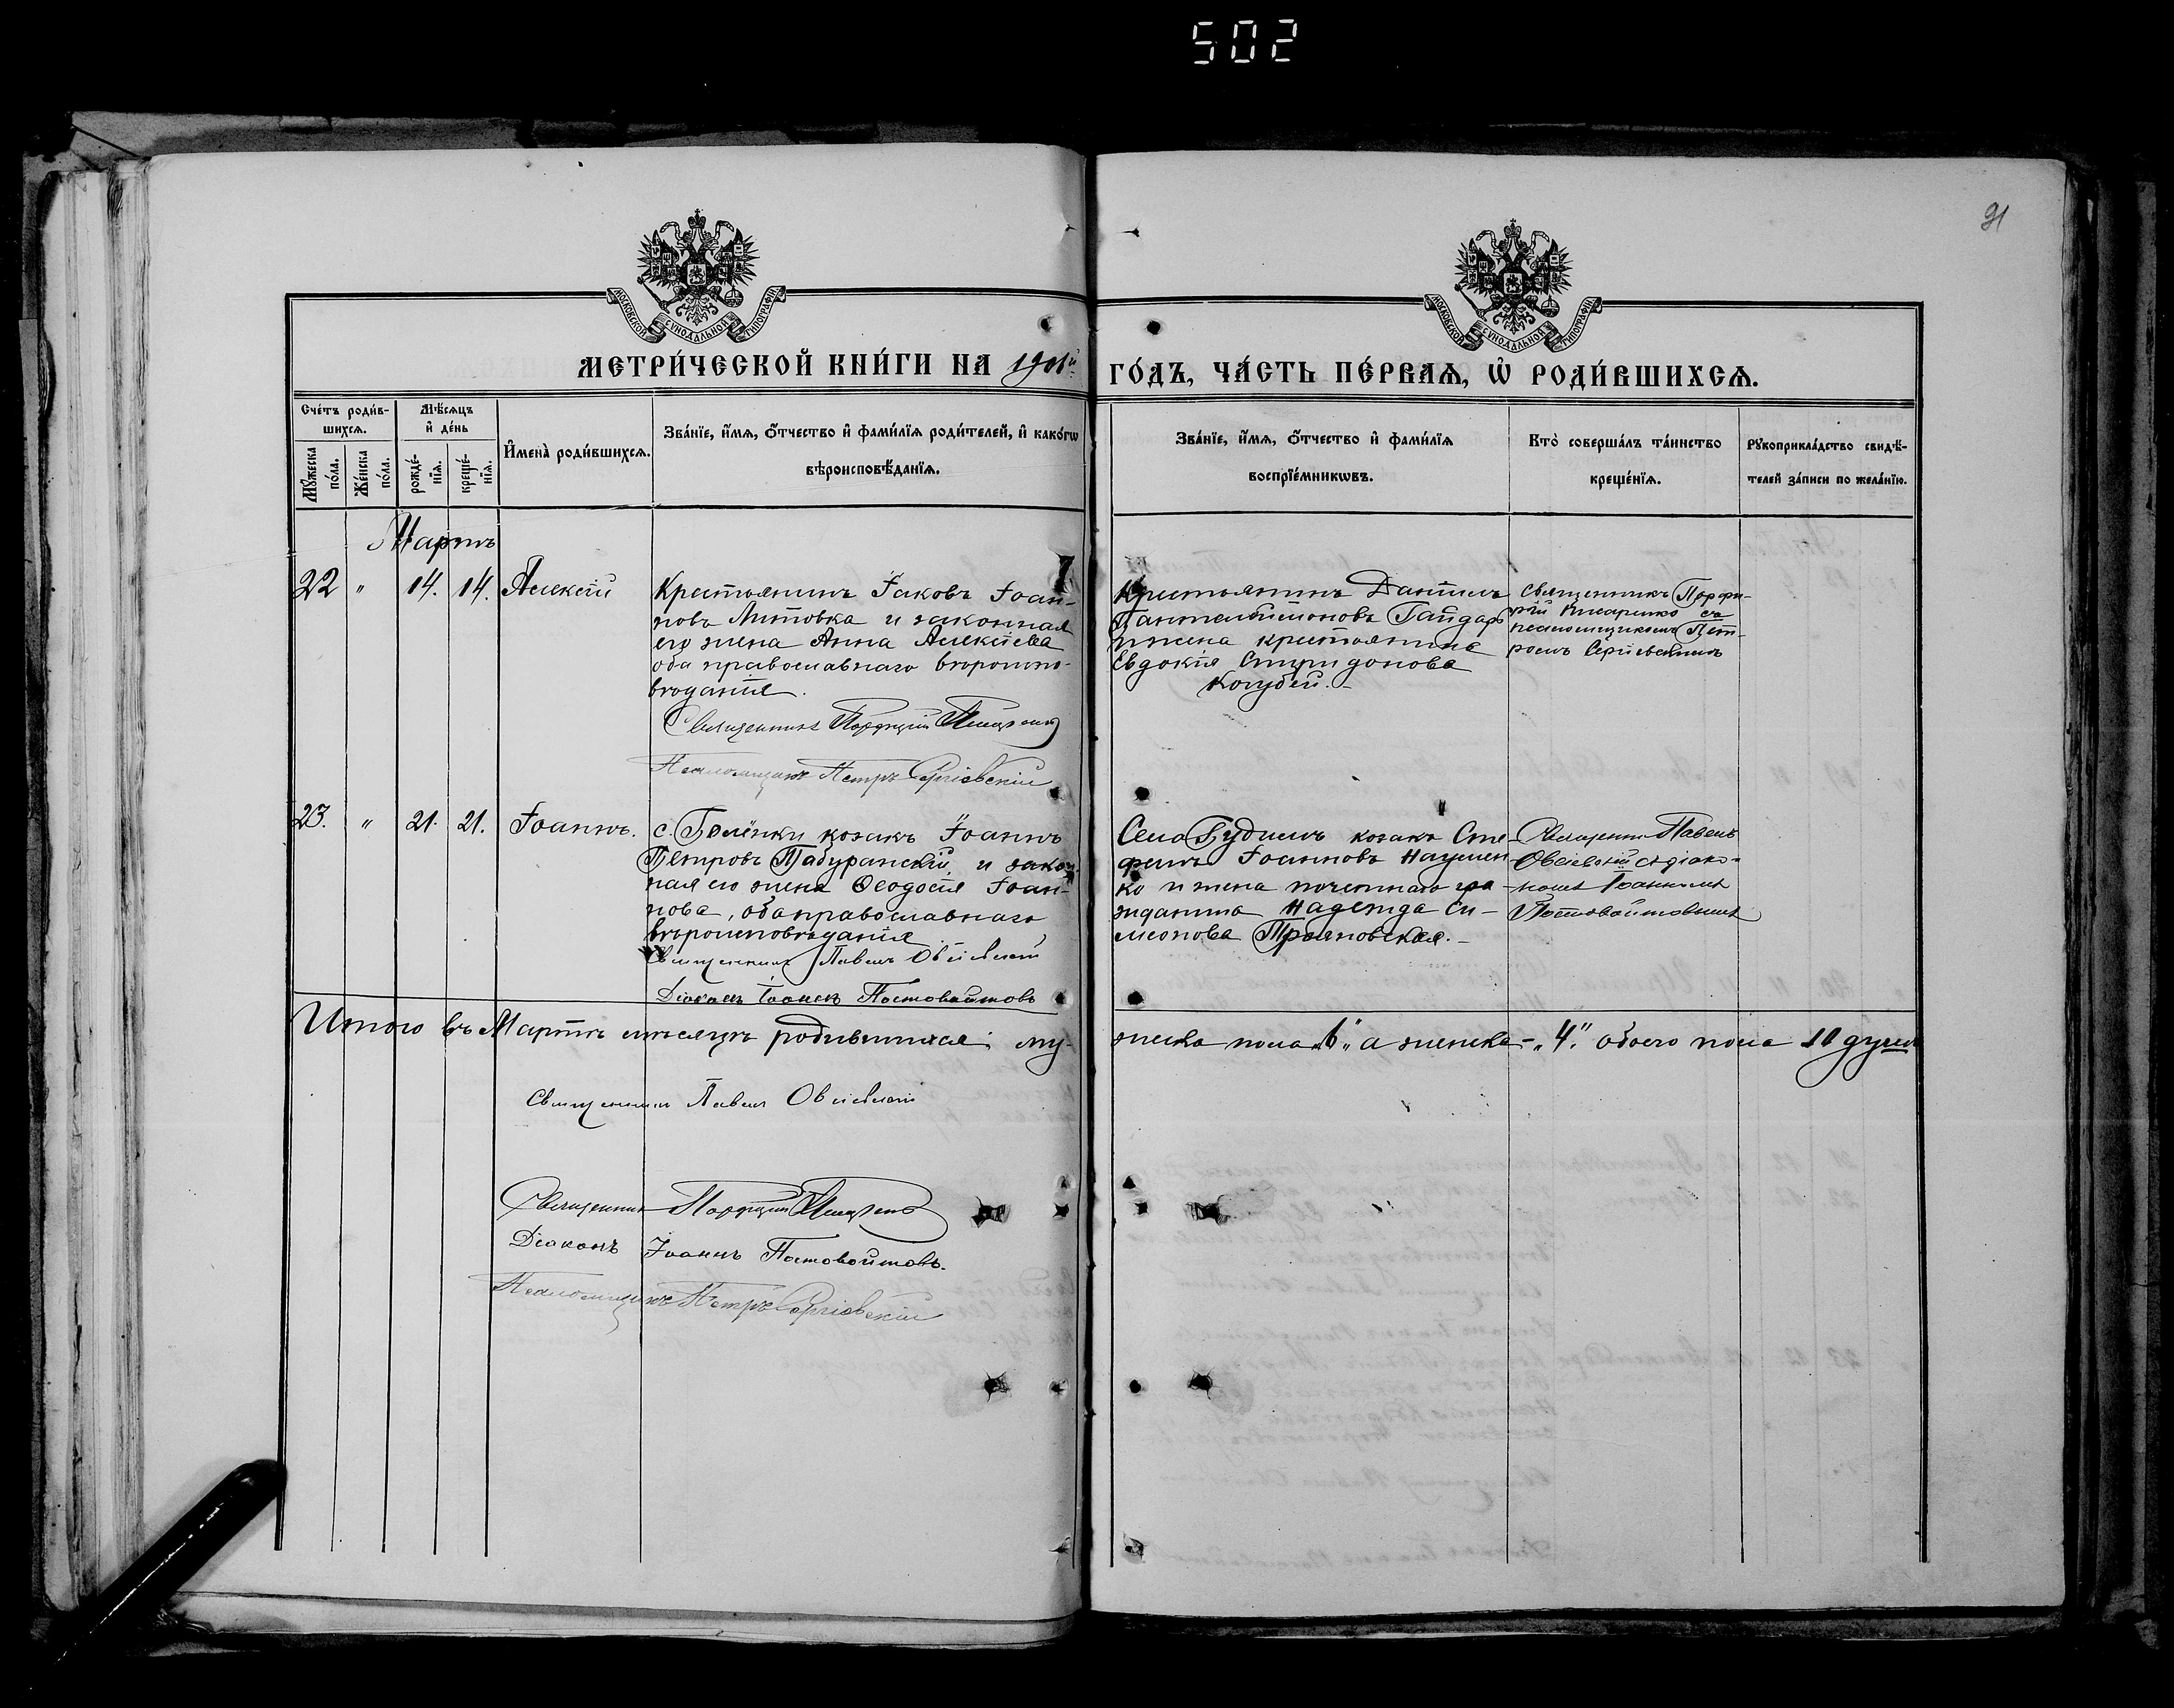 502
91
МОСКОВСКОЙ СѴНОДАЛЬНОЙ ТИПОГРАФІИ
МОСКОВСКОЙ СѴНОДАЛЬНОЙ ТИПОГРАФІИ
МЕТРИ́ЧЕСКОЙ КНИ́ГИ НА 1901й
ГО́ДЪ, ЧА́СТЬ ПЕ́РВАѦ, Ѡ҆ РОДИ́ВШИХСѦ.
Сче́тъ роди́в-
шихсѧ.
Мꙋ́жеска по́ла.
Же́нска по́ла.
Мѣ́сѧцъ
и҆ де́нь
рожде́-
нїѧ.
креще́-
нїѧ.
И҆мена̀ роди́вшихсѧ.
Зва́нїе, и҆́мѧ, ѻ҆́тчество и҆ фами́лїѧ роди́телей, и҆ како́гѡ
вѣроисповѣ́данїѧ.
Зва́нїе, и҆́мѧ, ѻ҆́тчество и҆ фами́лїѧ
воспрїе́мникѡвъ.
Кто̀ соверша́лъ та́инство
креще́нїѧ.
Рꙋкоприкла́дство свидѣ́-
телей за́писи по жела́нїю.
Мартъ
22 " 14. 14. Алексій
Крестьянинъ Іаковъ Іоан-
новъ Литовка и законная
его жена Анна Алексіева
оба православнаго вѣроиспо-
вѣданія.
Священникъ Порфирій
Псаломщикъ Петръ Сергіевскій
Крестьянинъ Даніилъ
Пантелеимоновъ Гайдаръ
и жена крестьянина
Евдокія Спиридонова
Кочубей.-
Священникъ Порфи-
рій Писаренко съ
псаломщикомъ Пет-
ромъ Сергіевскимъ
23. " 21. 21. Іоаннъ.
с. Бѣлёнки козакъ Іоаннъ
Петровъ Пабуранскій и закон-
ная его жена Ѳеодосія Іоан-
нова, оба православнаго
вѣроисповѣданія
Священникъ Павелъ Овсіевскій
Діаконъ Іоаннъ Постовойтовъ
Село Будищъ козакъ Сте-
фанъ Іоанновъ Наумен-
ко и жена почетнаго гра-
жданина Надежда Си-
меонова Трояновская.-
Священ. Павелъ
Овсіевскій съ діако-
номъ Іоанномъ
Постовойтовымъ
Итого въ Мартѣ мѣсяцѣ родившихся: му-
жеска пола "6" а женска - "4" обоего пола 10 душъ
Священникъ Павелъ Овсіевскій
Священникъ Порфирій
Діаконъ Іоаннъ Постовойтовъ.
Псаломщикъ Петръ Сергіевскій